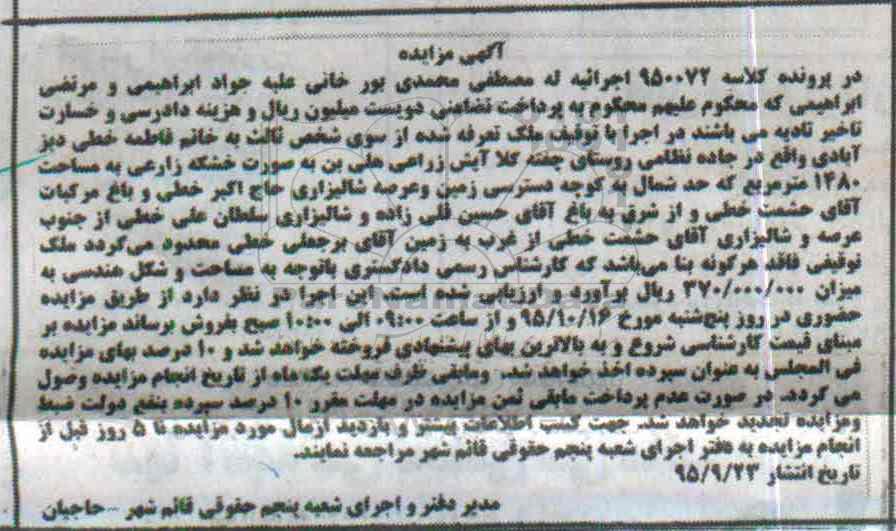 آگهی مزایده
در پرونده کلاسه ۹۵۰۰۷۲ اجرائیه له مصطفی محمدی پور خانی علیه جواد ابراهیمی و مرتضی
ابراهیمی که محکوم علیهم محکوم به پرداخت تضامنی دویست میلیون ریال و هزینه دادرسی و خسارت
تاخیر تادیه می باشند در اجرا با توقیف ملک تعرفه شده از سوی شخص ثالث به خانم فاطمه خطی دیز
آبادی واقع در جاده نظامی روستای چفته کلا آیش زراعی هلی بن به صورت خشکه زارعی به مساحت
۱۴۸۰ مترمربع که حد شمال به کوچه دسترسی زمین وعرصه شالیزاری حاج اکبر خطی و باغ مرکبات
آقای حشمت خطی و از شرق به باغ آقای حسین قلی زاده و شالیزاری سلطان علی خطی از جنوب
عرصه و شالیزاری آقای حشمت خطی از غرب به زمین آقای برجعلی خطی محدود می‌گردد ملک
توقیفی فاقد هرگونه بنا می‌باشد که کارشناس رسمی دادگستری باتوجه به مساحت و شکل هندسی به
میزان ۳۷۰/۰۰۰/۰۰۰ ریال برآورد و ارزیابی شده است. این اجرا در نظر دارد از طریق مزایده
حضوری در روز پنج‌شنبه مورخ ۹۵/۱۰/۱۶ و از ساعت ۰۹:۰۰ الی ۱۰:۰۰ صبح بفروش برساند مزایده بر
مبنای قیمت کارشناسی شروع و به بالاترین بهای پیشنهادی فروخته خواهد شد و ۱۰ درصد بهای مزایده
فی المجلس به عنوان سپرده اخذ خواهد شد. ومابقی ظرف مهلت یک ماه از تاریخ انجام مزایده وصول
می گردد. در صورت عدم پرداخت مابقی ثمن مزایده در مهلت مقرر ۱۰ درصد سپرده بنفع دولت ضبط
ومزایده تجدید خواهد شد. جهت کسب اطلاعات بیشتر و بازدید ازمال مورد مزایده تا ۵ روز قبل از
انجام مزایده به دفتر اجرای شعبه پنجم حقوقی قائم شهر مراجعه نمایند.
تاریخ انتشار ۹۵/۹/۲۳
مدیر دفتر و اجرای شعبه پنجم حقوقی قائم شهر - حاجیان